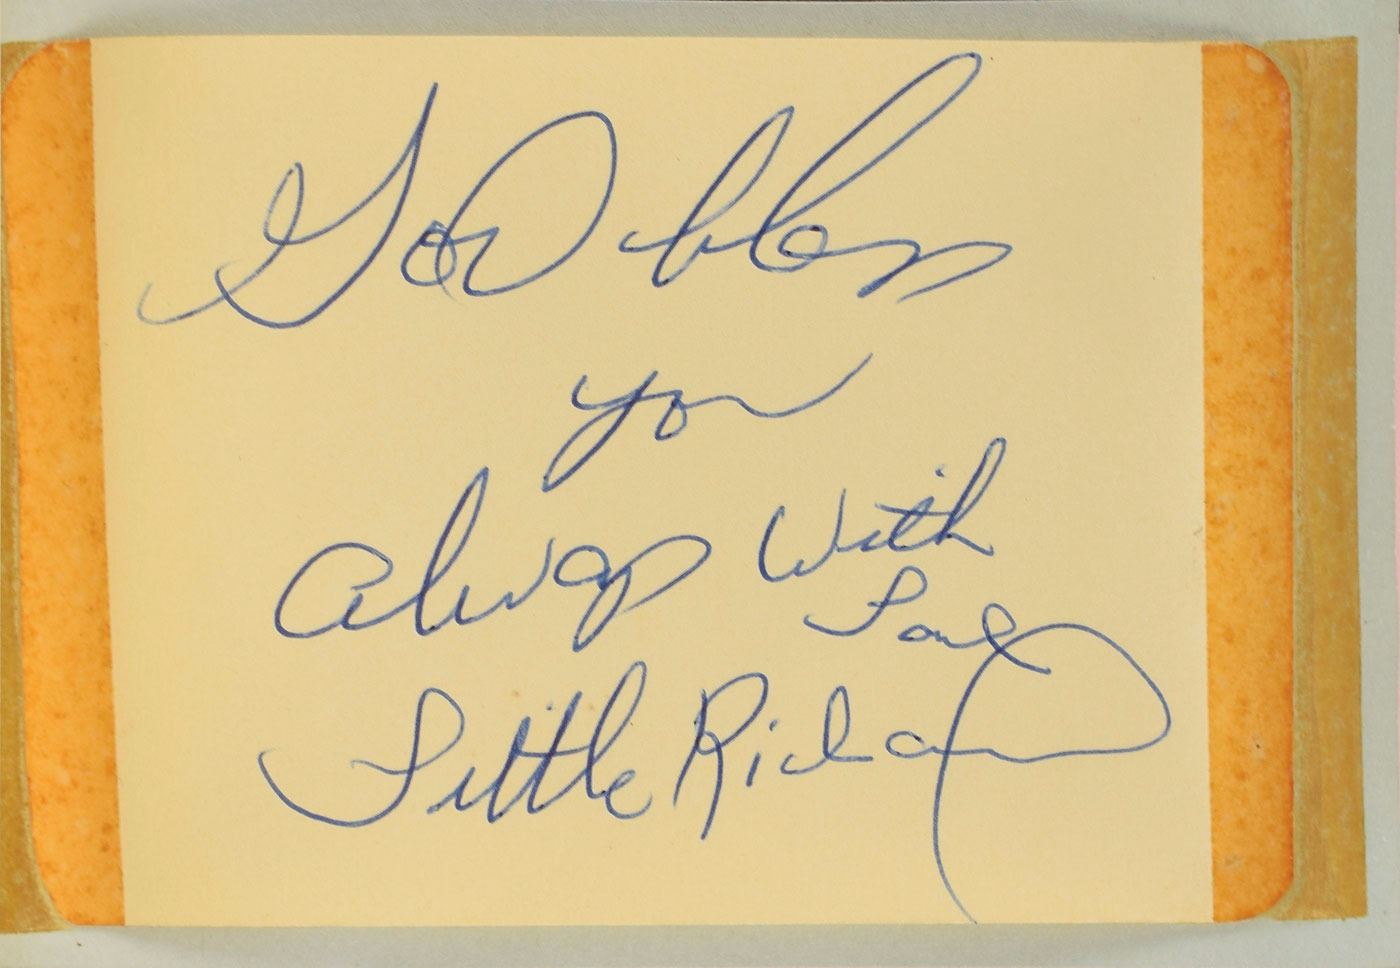 God bless
you
always with
Love
Little Richard